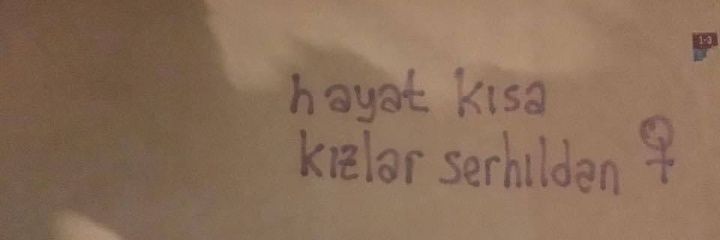 hayat kısa
kızlar serhıldan ♀
1-3